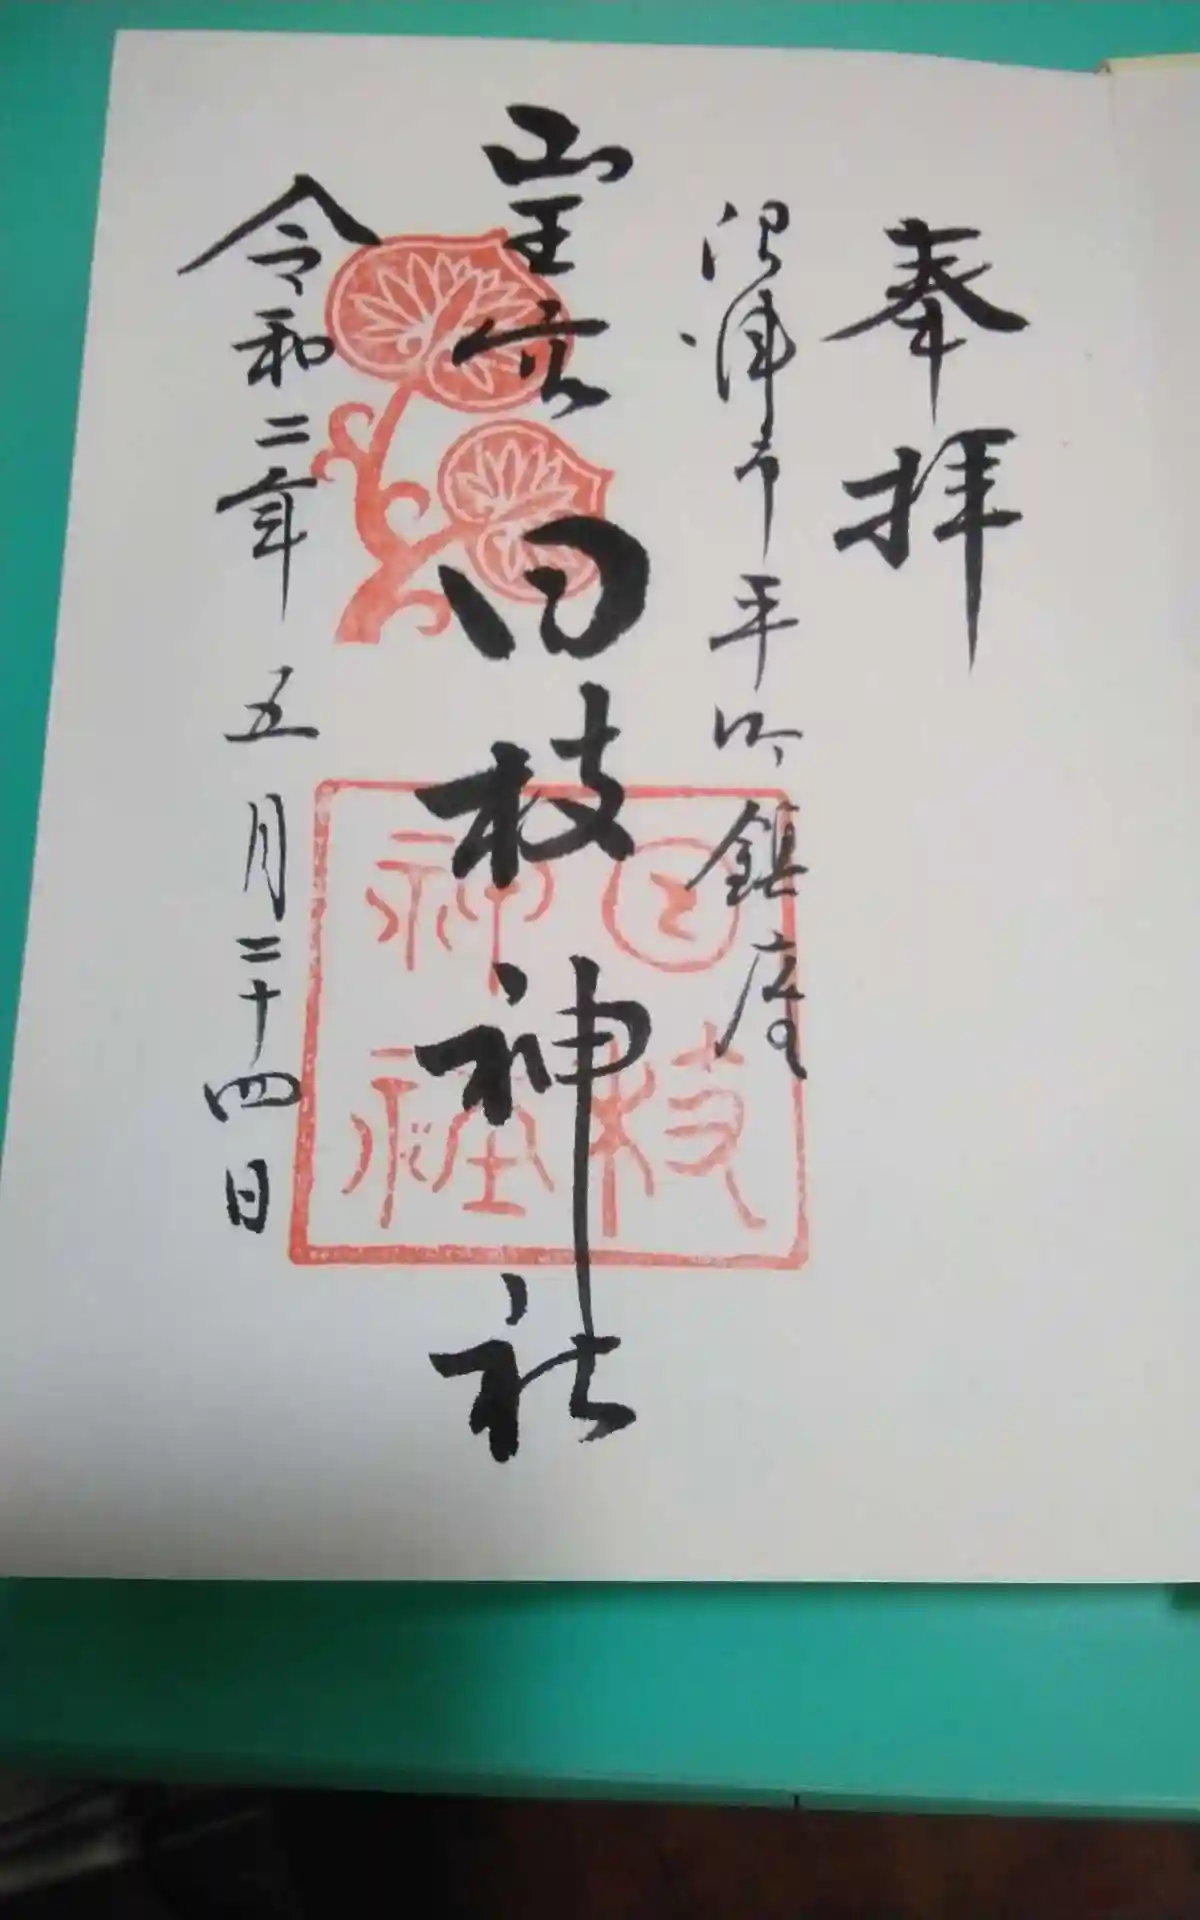 奉拝
沼津市平町鎮座
山王宮
日枝神社
令和二年五月二十四日
日枝
神社